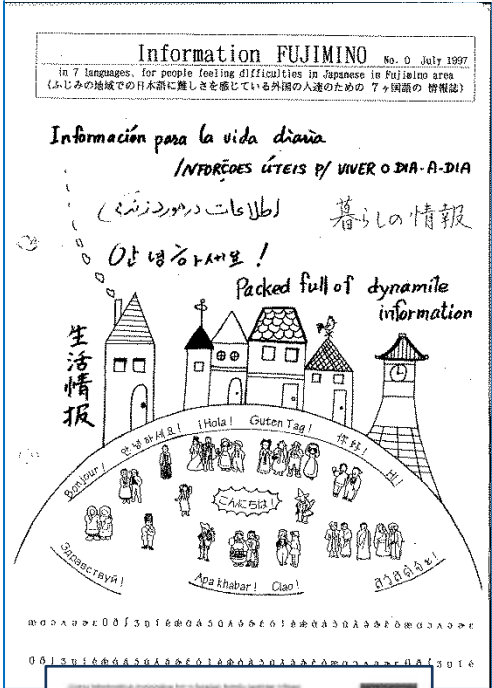 Information FUJIMINO No. 0 July 1997
in 7 languages, for people feeling difficulties in Japanese in Fujimino area
(ふじみの地域での日本語に難しさを感じている外国の人達のための 7ヶ国語の 情報誌)
Información para la vida diaria
INFORÇOES ÚTEIS P/ VIVER O DIA-A-DIA
(اطلاعات در مورد زندگی)
暮らしの情報
안녕하세요!
Packed full of dynamite
information
生活情报
Bonjour! 안녕하세요! ¡Hola! Guten Tag! 你好! Hi!
こんにちは!
Здравствуй! Apa khabar! Ciao! สวัสดีค่ะ!